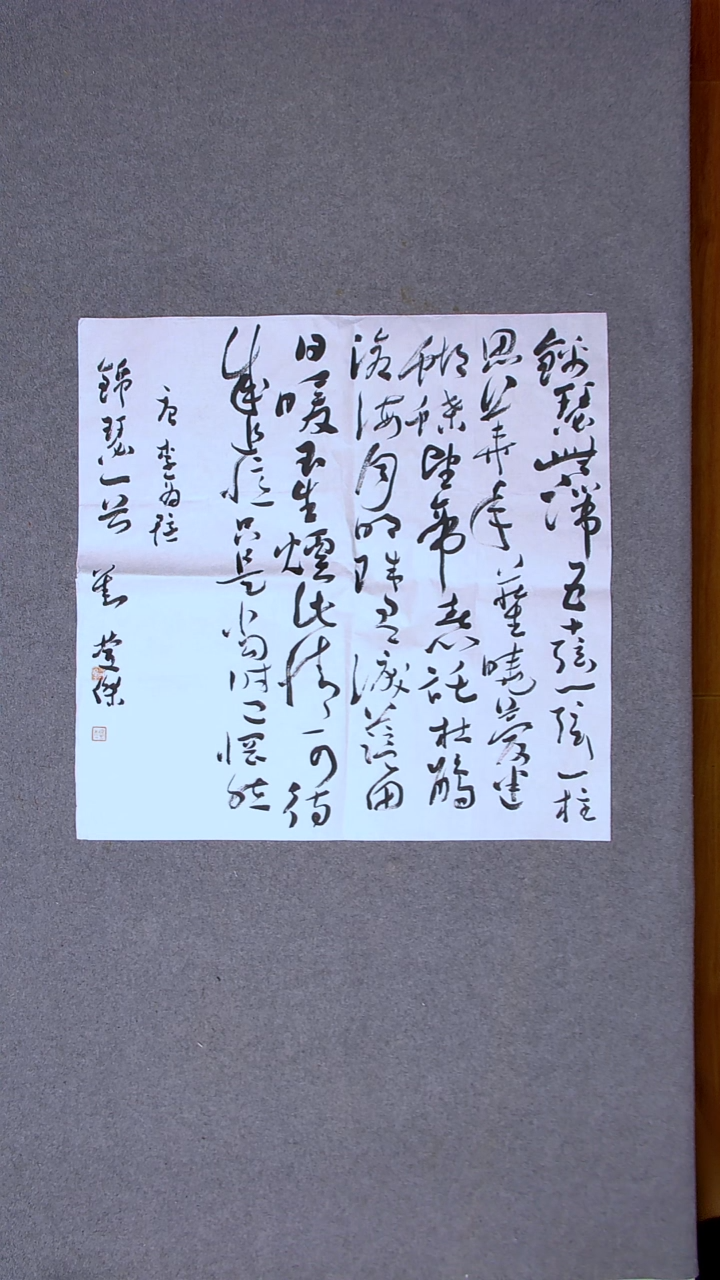 錦瑟無端五十弦一弦一柱
思華年莊生曉夢迷
蝴蝶望帝春心託杜鵑
滄海月明珠有淚藍田
日暖玉生煙此情可待
成追憶只是當時已惘然
唐李商隱
錦瑟一首 傑